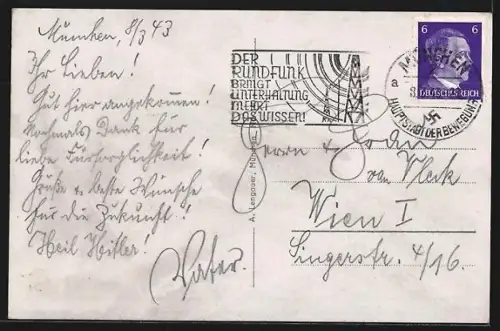 München, 8/3 43
Ihr Lieben!
Gut hier angekommen!
Nochmals Dank für
liebe Fürsorglichkeit!
Grüße & beste Wünsche
für die Zukunft!
Heil Hitler!
Vater.
A. Lengauer, München
DER
RUNDFUNK
BRINGT
UNTERHALTUNG
MEHRT
DAS WISSEN!
MÜNCHEN
a
HAUPTSTADT DER BEWEGUNG
6 6
DEUTSCHES REICH
van Vleck
Wien I
Singerstr. 4/16.